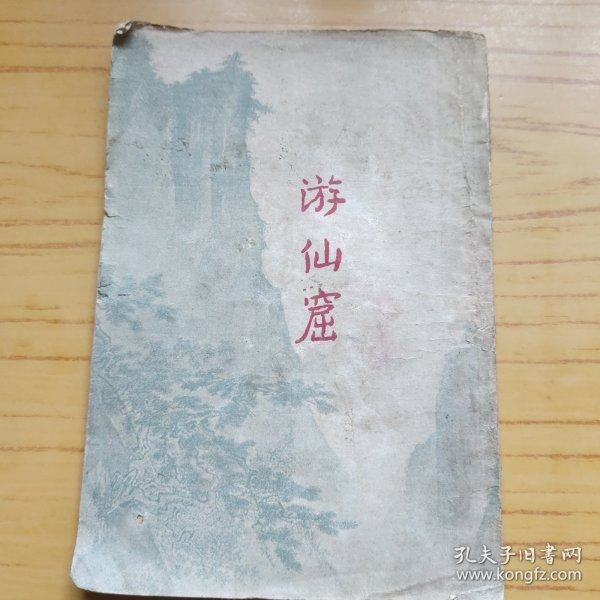 游仙窟
孔夫子旧書网
www.kongfz.com